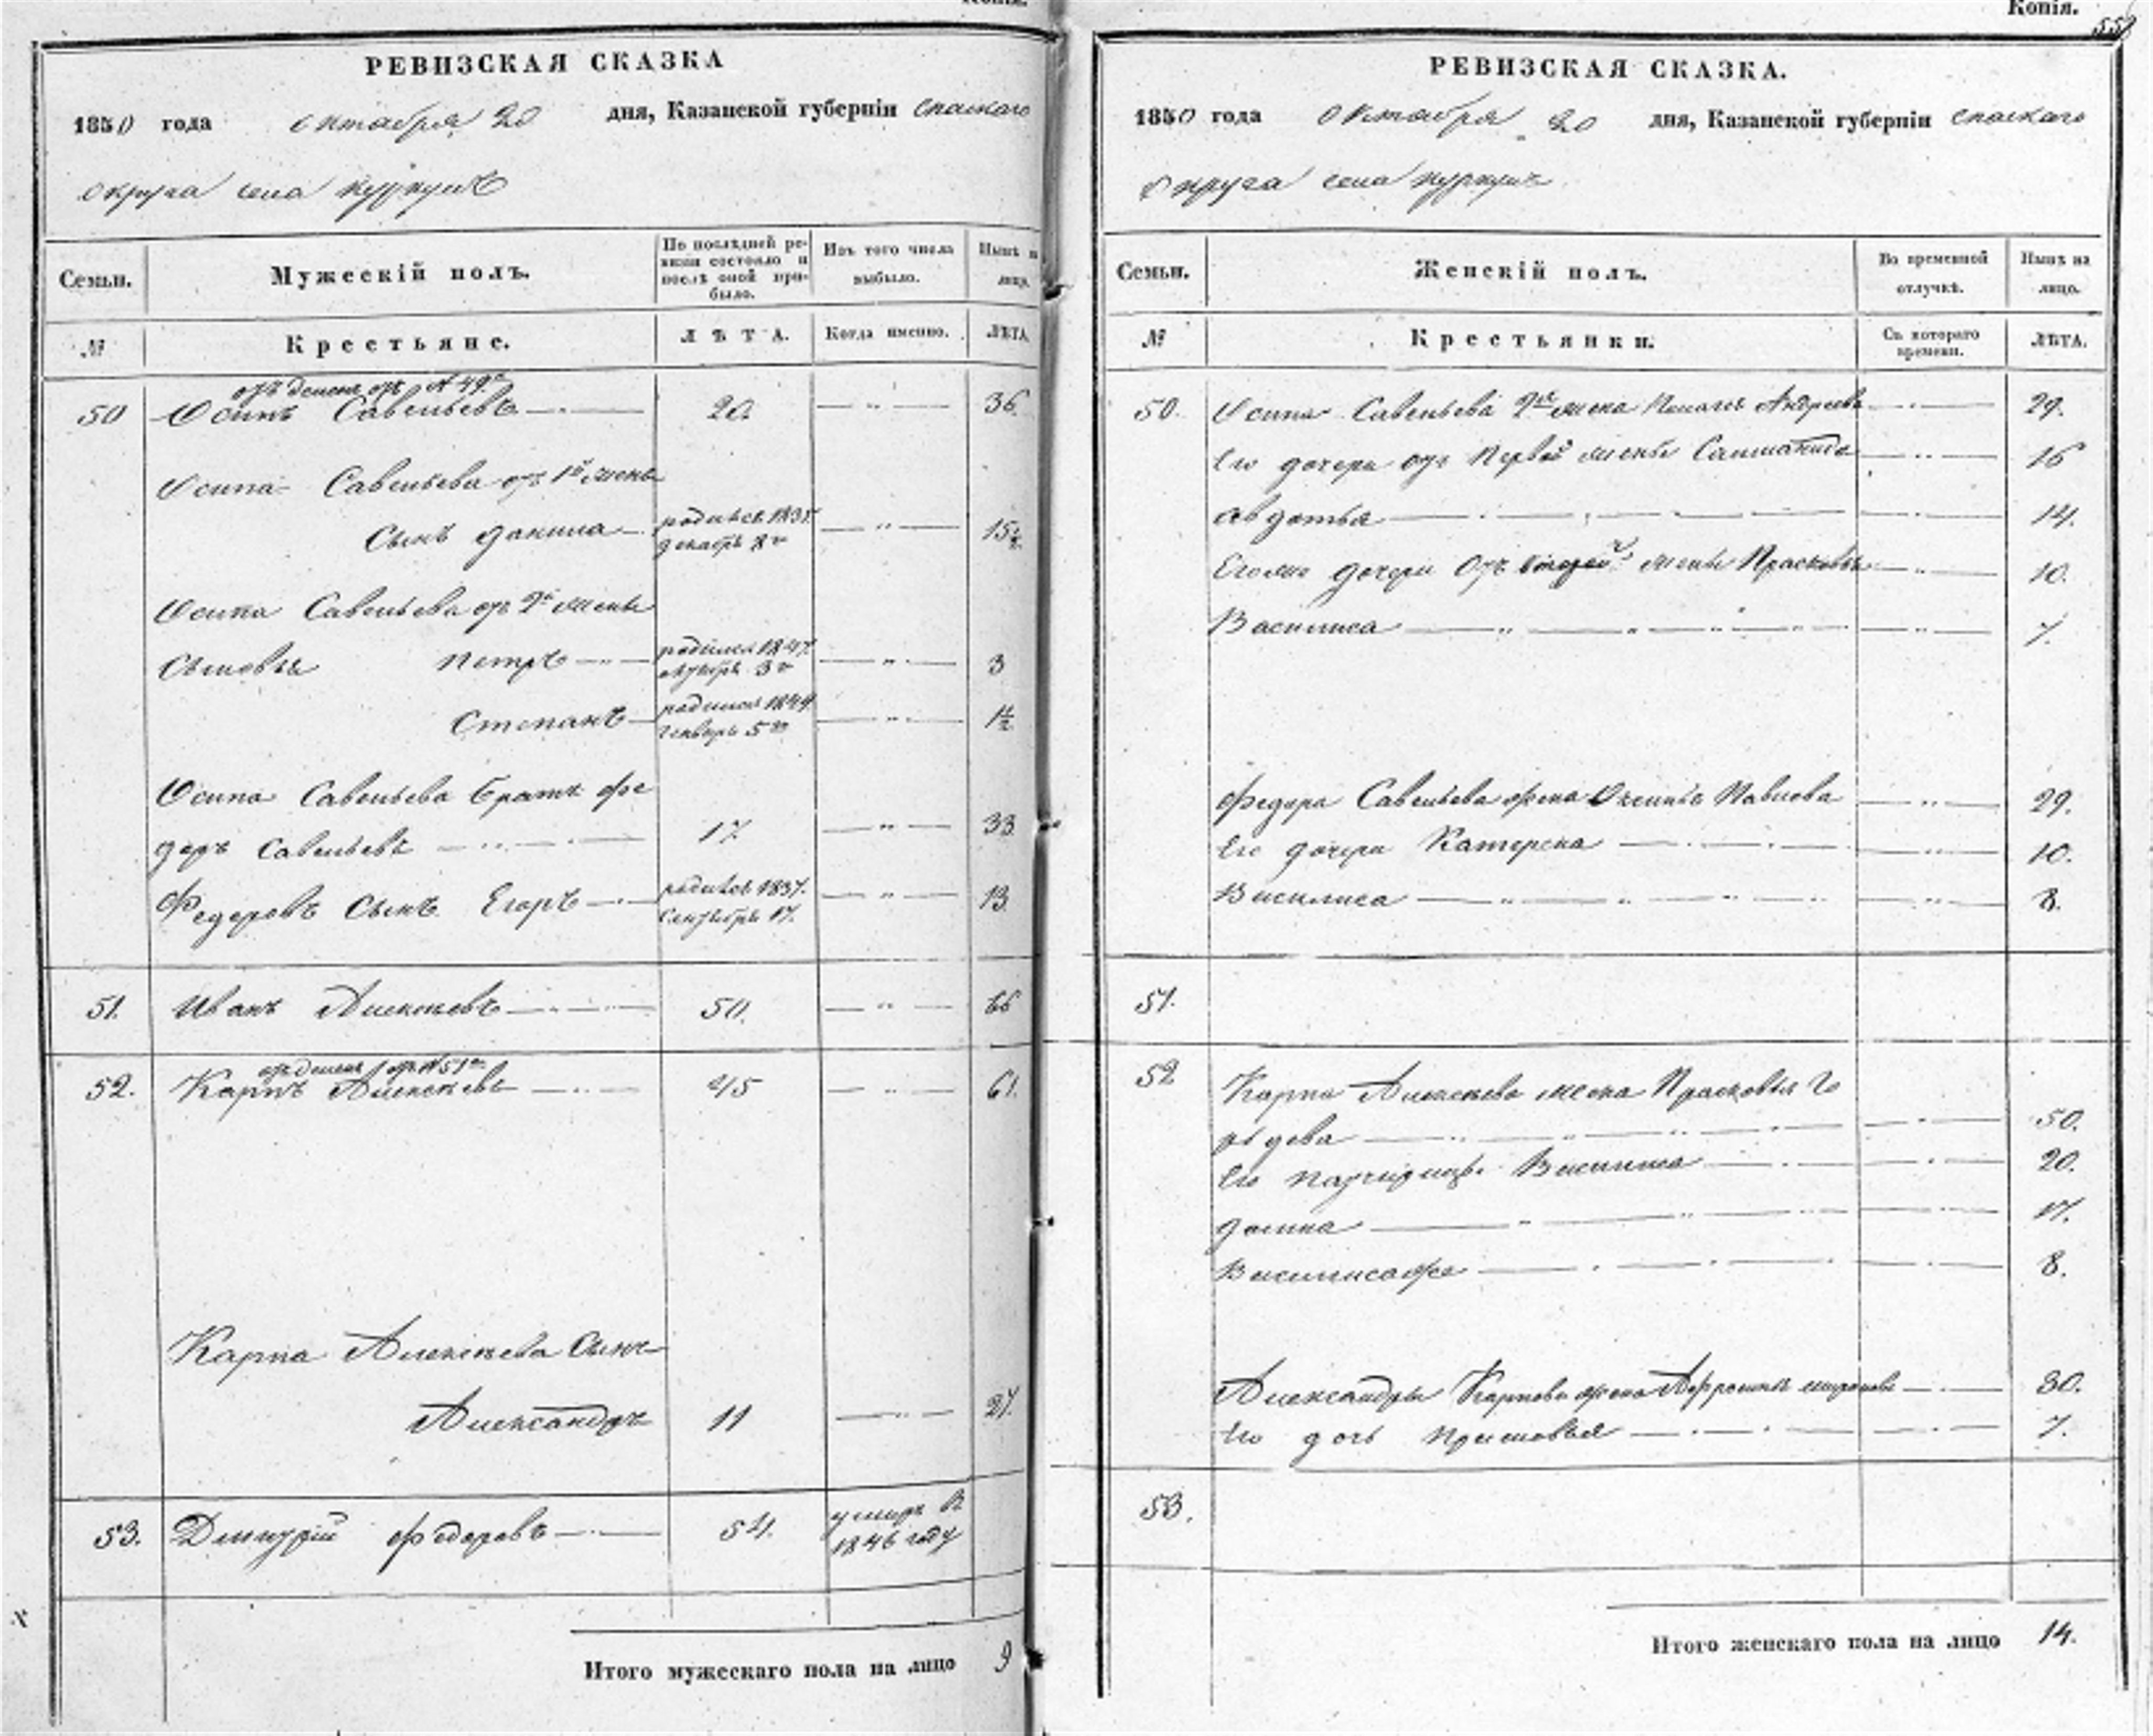 Копія.
РЕВИЗСКАЯ СКАЗКА
1850 года октября 20 дня, Казанской губерніи Спаскаго
округа села
Семьи. Мужескій полъ. По послѣдней ревизіи состояло и послѣ оной прибыло. Изъ того числа выбыло. Нынѣ на лицо.
№ Крестьяне. ЛѢТА. Когда именно. ЛѢТА.
отъ № 49го
50 Осипъ Савельевъ 20. 36.
Осипа Савельева отъ 1й жены
Сынъ Данила родился 1835. декабря 15½
Осипа Савельева отъ 2й жены
Сыновья Петръ родился 1847. 3го 3
Степанъ родился 1849. генваря 5го 1½
Осипа Савельева братъ Фе
доръ Савельевъ 17. 33.
Федоровъ Сынъ Егоръ родился 1837. Сентября 17. 13.
51. Иванъ Алексѣевъ 50. 66
отъ №51го
52. Карпъ Алексѣевъ 45 61.
Карпа Алексѣева Сынъ
Александръ 11 27.
53. Дмитрій Федоровъ 54. умеръ в 1846 году
Итого мужескаго пола на лицо 9
Копія.
РЕВИЗСКАЯ СКАЗКА.
1850 года Октября 20 дня, Казанской губерніи Спаскаго
Округа села
Семьи. Женскій полъ. Во временной отлучкѣ. Нынѣ на лицо.
№ Крестьянки. Съ котораго времени. ЛѢТА.
50. Осипа Савельева 2я жена Андреева 29.
Его дочери отъ первой жены 16
Авдотья 14.
Его же дочери Отъ второй жены Прасковья 10.
Василиса 7.
Федора Савельева жена Павлова 29.
Его дочери Катерена 10.
Василиса 8.
51.
52 Карпа Алексѣева жена Прасковья
50.
Его Василиса 20.
17.
Василиса же 8.
Александры Карпова жена 30.
Его дочь 7.
53.
Итого женскаго пола на лицо 14.